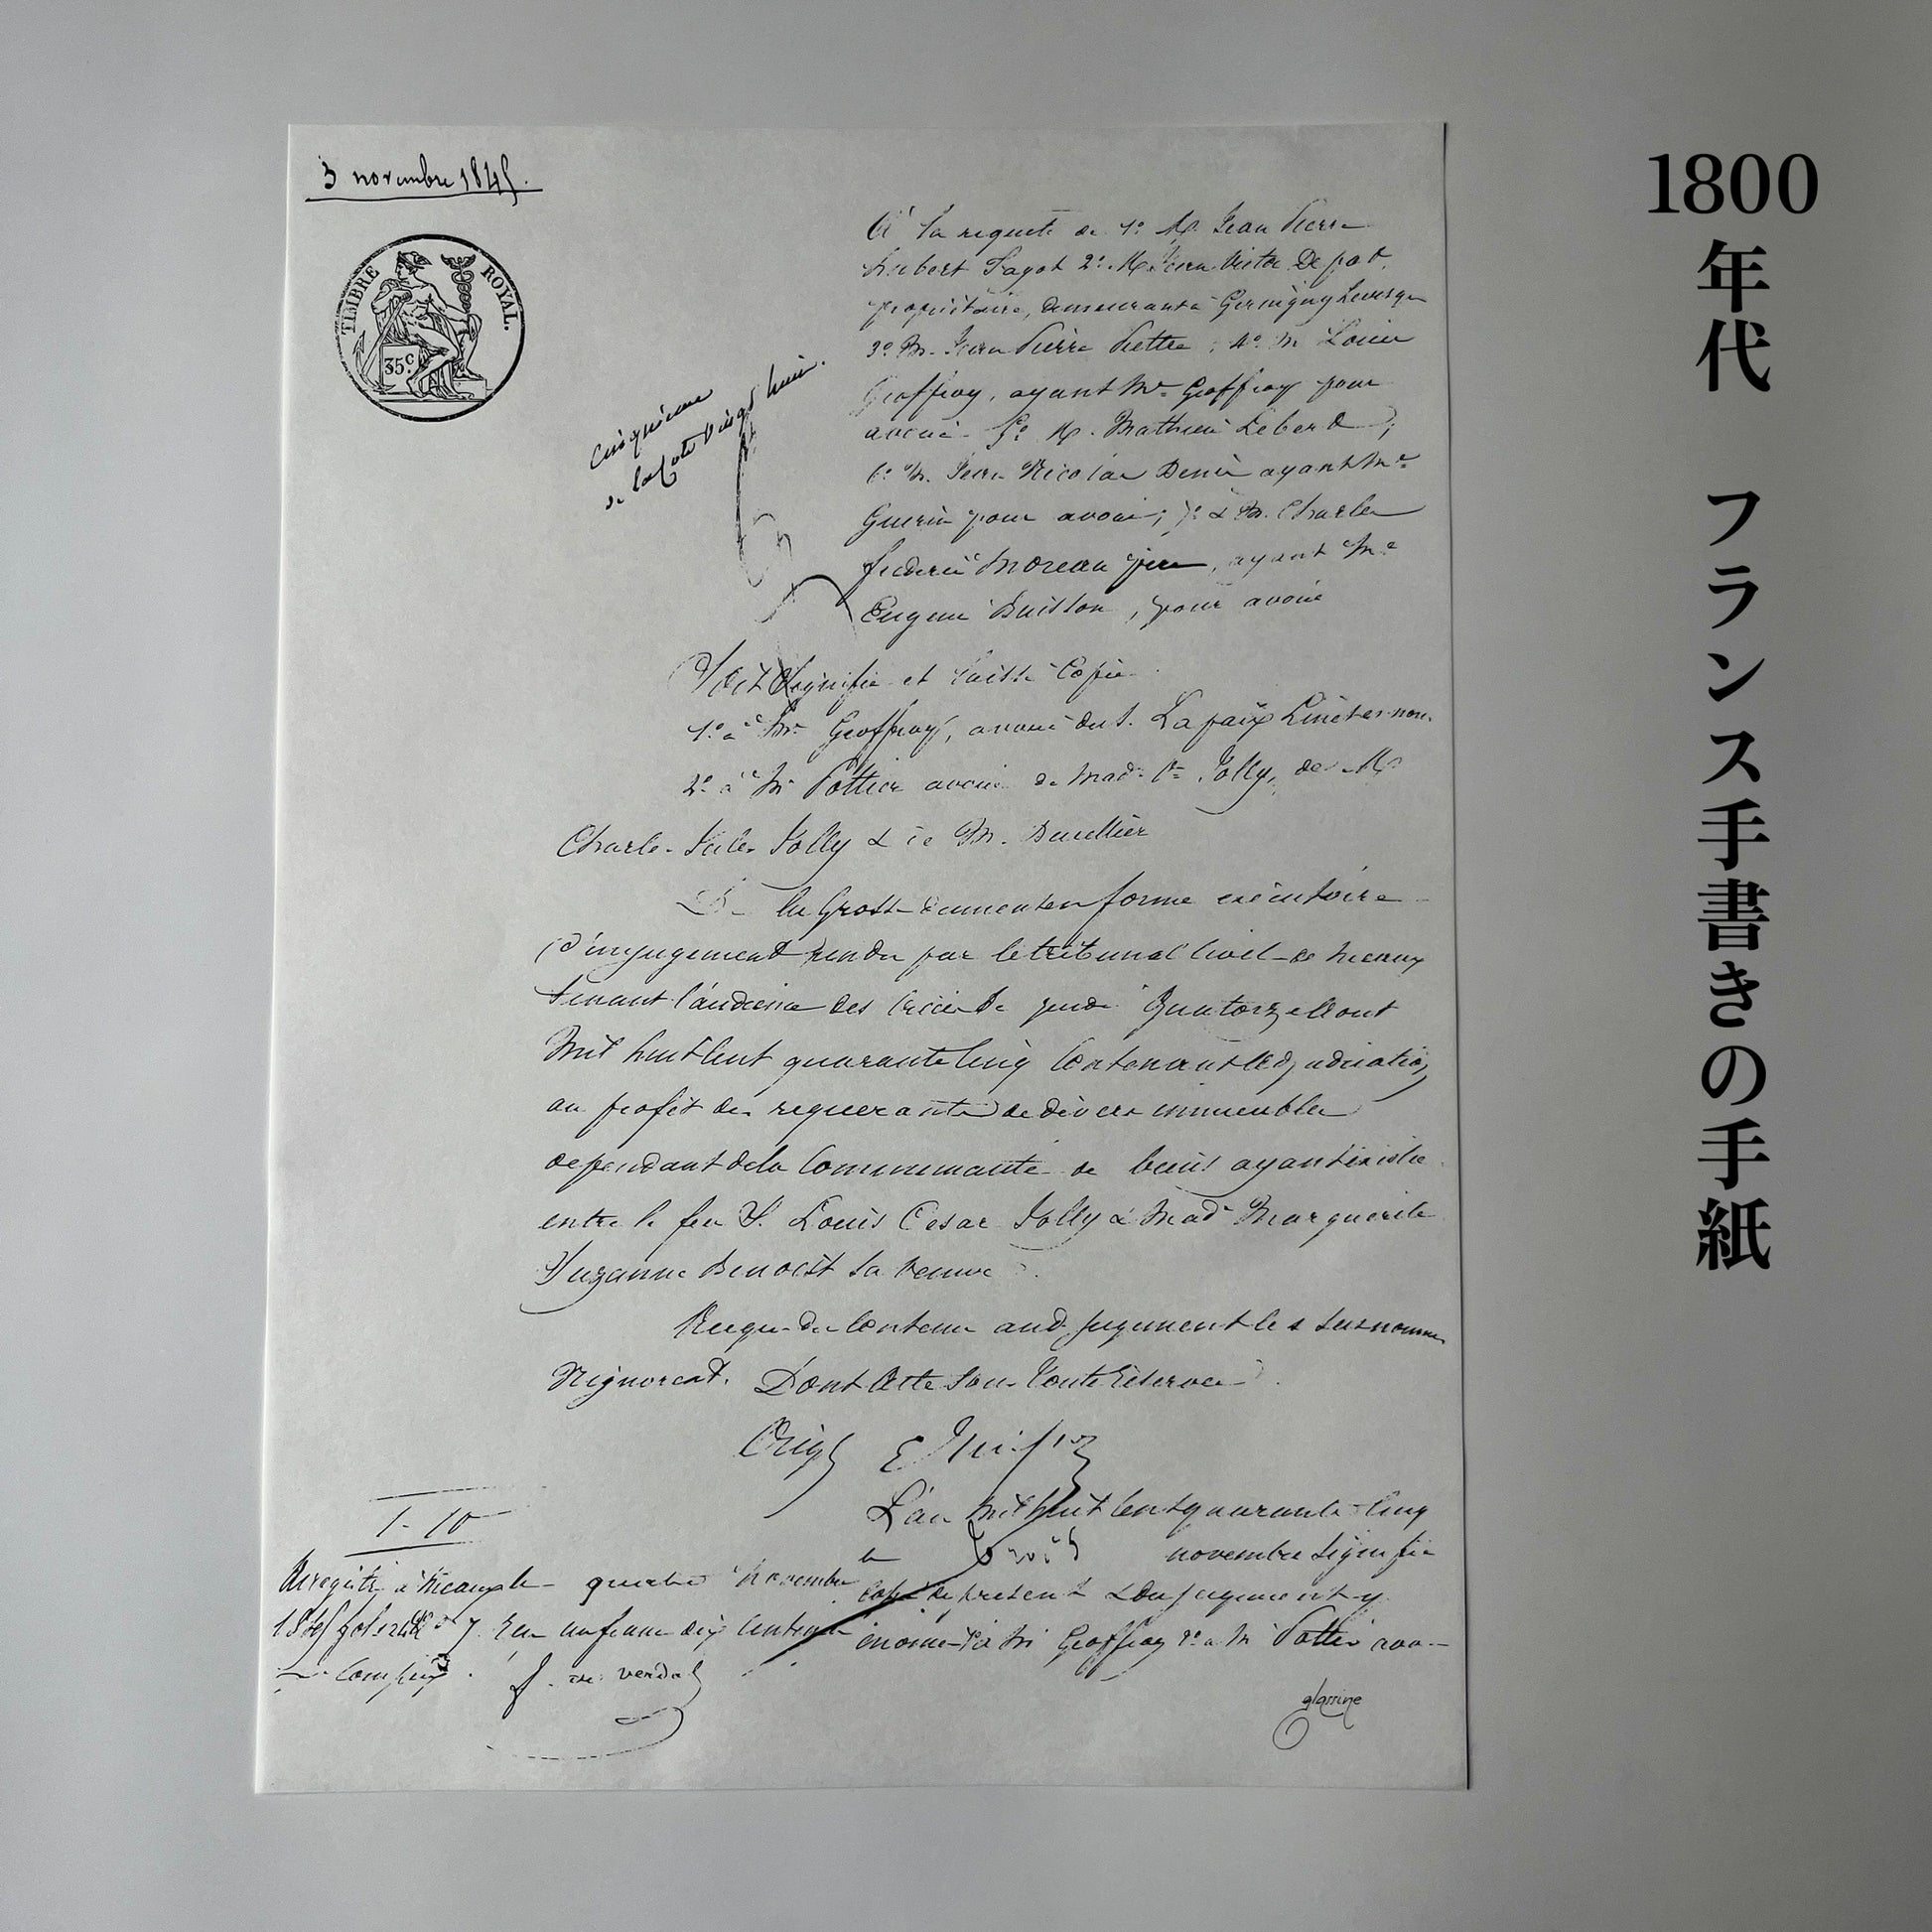 3 novembre 1845.
TIMBRE ROYAL.
35c.
cinquième
de la cote vingt huit.
À la requête de 1º M. Jean Pierre
hubert Fagot 2º. M. Jean Victor
propriétaire, demeurant à Germigny Levesque
3º M. Jean Pierre ; 4º M Louis
Geoffroy, ayant Me Geoffroy pour
avoué 5º M. Mathieu Leber ;
6º M. Jean Nicolas Denis ayant Me
Guerin pour avoué ; 7º & M. Charles
frederic Moreau père, ayant Me
Eugene Buisson, pour avoué
Soit Signifié et laissé Copie
1º à Me Geoffroy, avoué du S.
2º à Me Pottier avoué de Mad. Ve Jolly, de M.
Charles Jules Jolly & de M.
De la Grosse dument en forme exécutoire
d'un jugement rendu par le tribunal Civil de Meaux
tenant l'audience des Criées le jeudi Quatorze Aout
Mil huit Cent quarante Cinq Contenant adjudication
au profit des requerants de divers immeubles
dependant de la Communauté de biens ayant existé
entre le feu S. Louis Cesar Jolly & Made Marguerite
Suzanne Benoist sa veuve
du Contenu aud. jugement les susnommés
N'ignorent. Dont Acte Sous Toutes Réserves
L'an Mil huit Cent quarante Cinq
le trois novembre Signifié
Copie du present & du jugement y
énoncé 1º à Me Geoffroy 2º à Me Pottier avo-
1 - 10
Enregistré à Meaux le quatre Novembre
1845 fol. 124 Reçu un franc dix Centimes
Compris
glassine
1800年代 フランス手書きの手紙